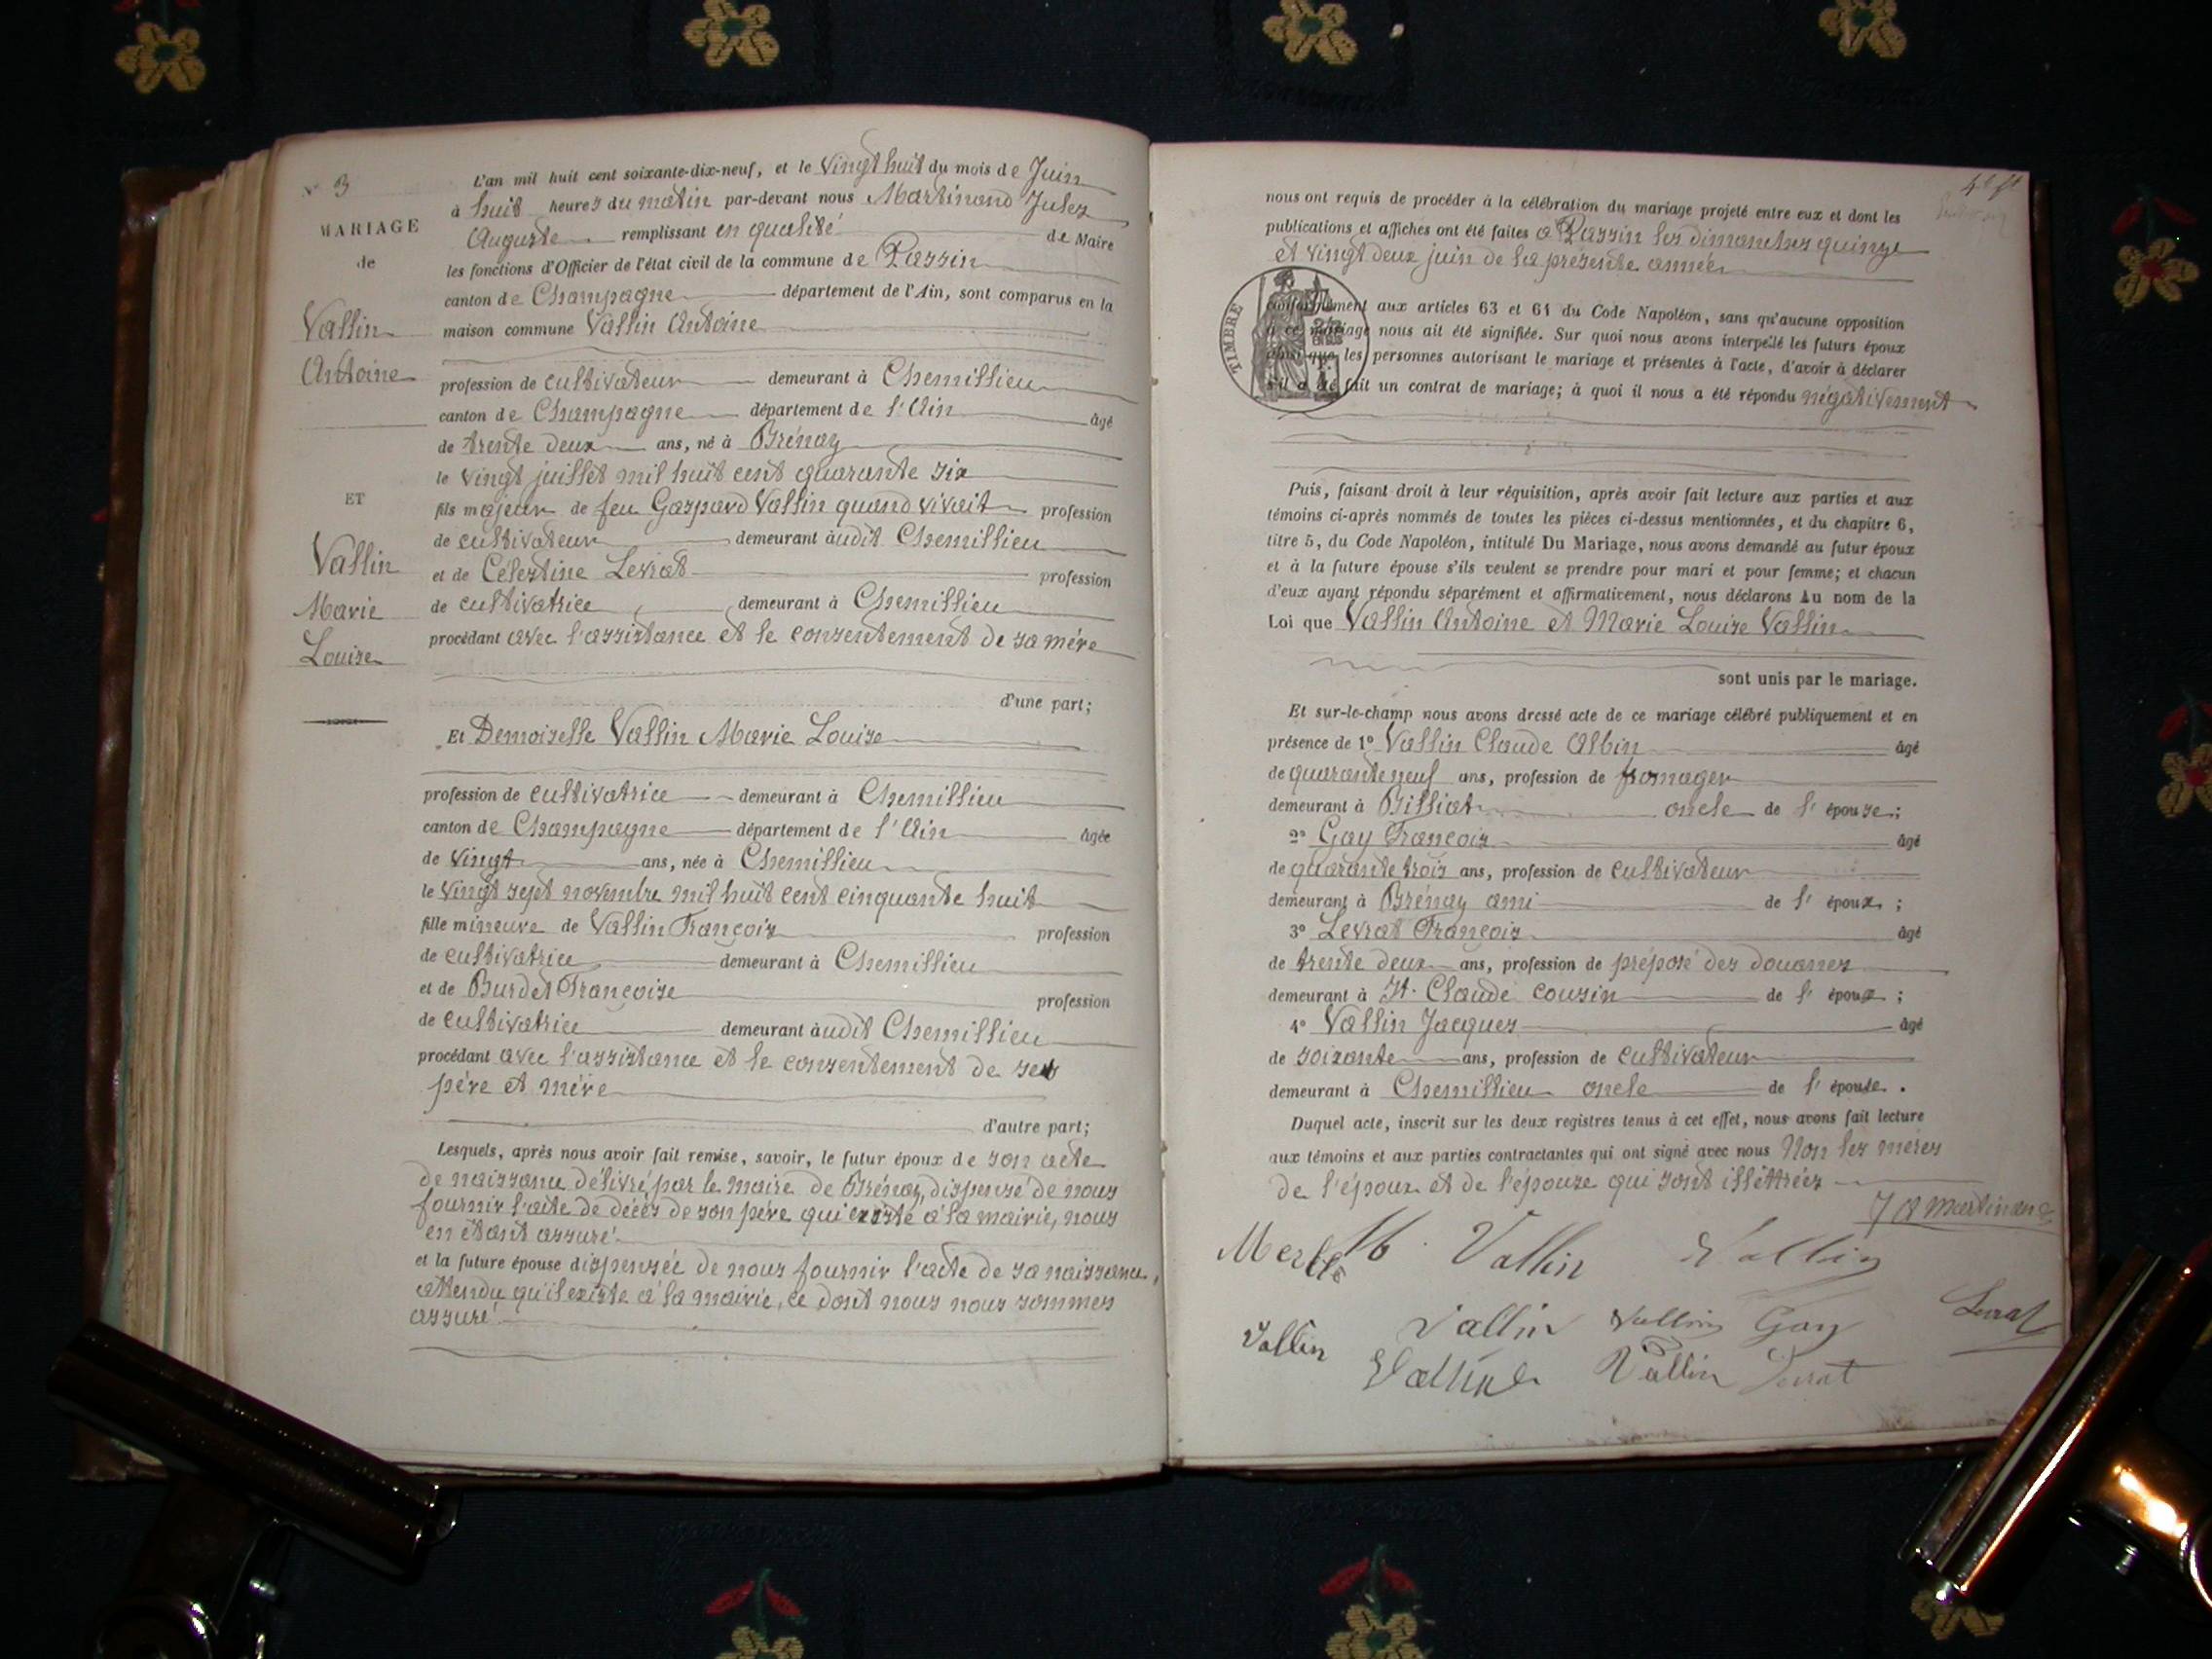 N° 3
MARIAGE
de
Vallin
Antoine
ET
Vallin
Marie
Louise
L'an mil huit cent soixante-dix-neuf, et le Vingt huit du mois de Juin
à huit heures du matin par-devant nous Martinand Jules
Auguste remplissant en qualité de Maire
les fonctions d'Officier de l'état civil de la commune de Passin
canton de Champagne département de l'Ain, sont comparus en la
maison commune Vallin Antoine
profession de cultivateur demeurant à Chemillieu
canton de Champagne département de l'Ain âgé
de trente deux ans, né à Brénaz
le vingt juillet mil huit cent quarante six
fils majeur de feu Gaspard Vallin quand vivait profession
de cultivateur demeurant audit Chemillieu
et de Célestine Levrat profession
de cultivatrice demeurant à Chemillieu
procédant avec l'assistance et le consentement de sa mère
d'une part;
Et Demoiselle Vallin Marie Louise
profession de cultivatrice demeurant à Chemillieu
canton de Champagne département de l'Ain âgée
de vingt ans, née à Chemillieu
le vingt sept novembre mil huit cent cinquante huit
fille mineure de Vallin François profession
de cultivatrice demeurant à Chemillieu
et de Burdet Françoise profession
de cultivatrice demeurant audit Chemillieu
procédant avec l'assistance et le consentement de ses
père et mère
d'autre part;
Lesquels, après nous avoir fait remise, savoir, le futur époux de son acte
de naissance délivré par le maire de Brénaz, dispensé de nous
fournir l'acte de décès de son père qui existe à la mairie, nous
en étant assuré
et la future épouse dispensée de nous fournir l'acte de sa naissance,
attendu qu'il existe à la mairie, ce dont nous nous sommes
assuré
nous ont requis de procéder à la célébration du mariage projeté entre eux et dont les
publications et affiches ont été faites à Passin les dimanches quinze
et vingt deux juin de la présente année
TIMBRE
conformément aux articles 63 et 64 du Code Napoléon, sans qu'aucune opposition
à ce mariage nous ait été signifiée. Sur quoi nous avons interpellé les futurs époux
ainsi que les personnes autorisant le mariage et présentes à l'acte, d'avoir à déclarer
s'il a été fait un contrat de mariage; à quoi il nous a été répondu négativement
Puis, faisant droit à leur réquisition, après avoir fait lecture aux parties et aux
témoins ci-après nommés de toutes les pièces ci-dessus mentionnées, et du chapitre 6,
titre 5, du Code Napoléon, intitulé Du Mariage, nous avons demandé au futur époux
et à la future épouse s'ils veulent se prendre pour mari et pour femme; et chacun
d'eux ayant répondu séparément et affirmativement, nous déclarons Au nom de la
Loi que Vallin Antoine et Marie Louise Vallin
sont unis par le mariage.
Et sur-le-champ nous avons dressé acte de ce mariage célébré publiquement et en
présence de 1° Vallin Claude Albin âgé
de quarante neuf ans, profession de fromager
demeurant à Billiat oncle de l'épouse;
2° Gay François âgé
de quarante trois ans, profession de cultivateur
demeurant à Brénaz ami de l'époux;
3° Levrat François âgé
de trente deux ans, profession de préposé des douanes
demeurant à St. Claude cousin de l'époux;
4° Vallin Jacques âgé
de soixante ans, profession de cultivateur
demeurant à Chemillieu oncle de l'épouse.
Duquel acte, inscrit sur les deux registres tenus à cet effet, nous avons fait lecture
aux témoins et aux parties contractantes qui ont signé avec nous Non les mères
de l'époux et de l'épouse qui sont illéttrées
J A Martinand
Vallin Vallin
Vallin Vallin Vallin Gay Levrat
Vallin Vallin Levrat